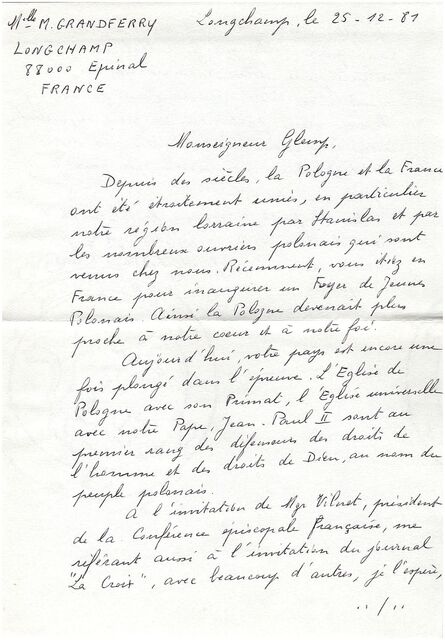 Mlle M. GRANDFERRY
Longchamp, le 25-12-81
LONGCHAMP
88000 Epinal
FRANCE
Monseigneur Glemp,
Depuis des siècles, la Pologne et la France
ont été étroitement unies, en particulier
notre région lorraine par Stanislas et par
les nombreux ouvriers polonais qui sont
venus chez nous. Récemment, vous étiez en
France pour inaugurer un Foyer de Jeunes
Polonais. Ainsi la Pologne devenait plus
proche à notre coeur et à notre foi.
Aujourd'hui, votre pays est encore une
fois plongé dans l'épreuve. L'Eglise de
Pologne avec son Primat, l'Eglise universelle
avec notre Pape, Jean-Paul II sont au
premier rang des défenseurs des droits de
l'homme et des droits de Dieu, au nom du
peuple polonais.
A l'invitation de Mgr Vilnet, président
de la Conférence épiscopale française, me
référant aussi à l'invitation du journal
"La Croix", avec beaucoup d'autres, je l'espère,
../..